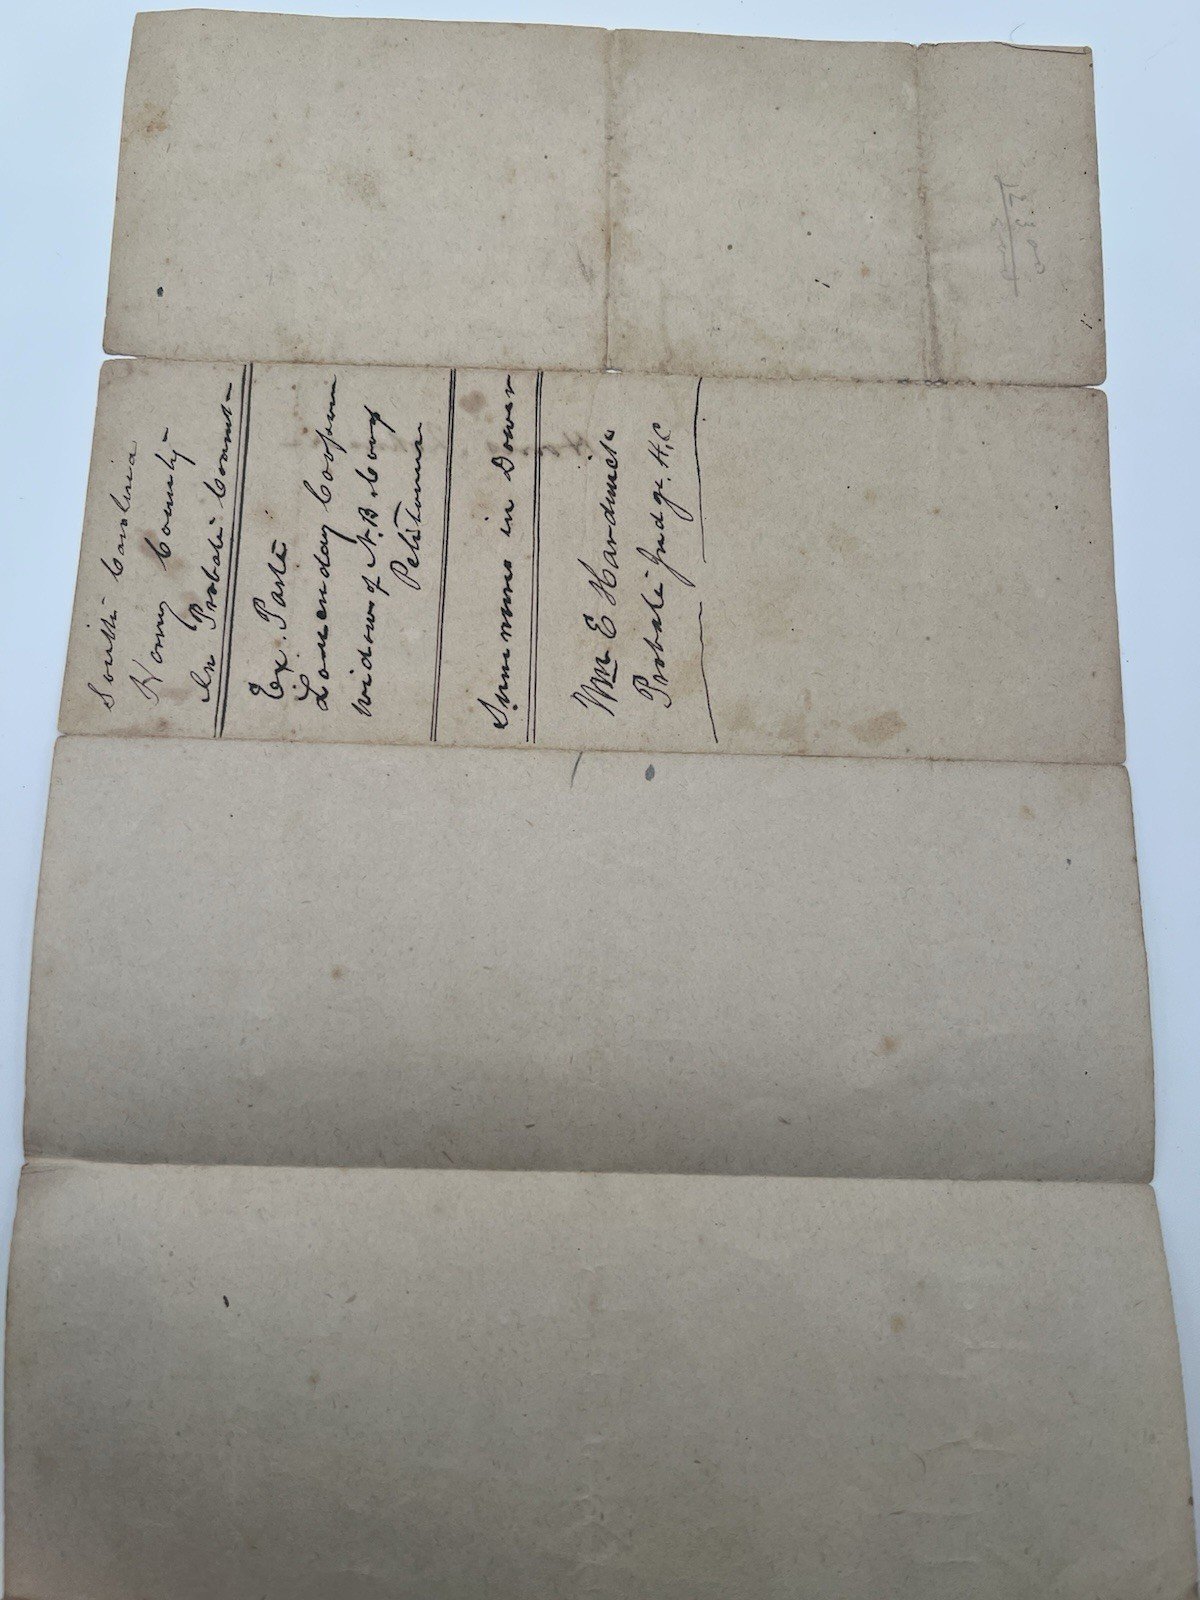 South Carolina
Horry County
In Probate Court
Ex. Parte
Louenday Cooper
widow of N. B. Coop
Petitioner
Summons in Dower
Wm E Hardwick
Probate Judge H.C